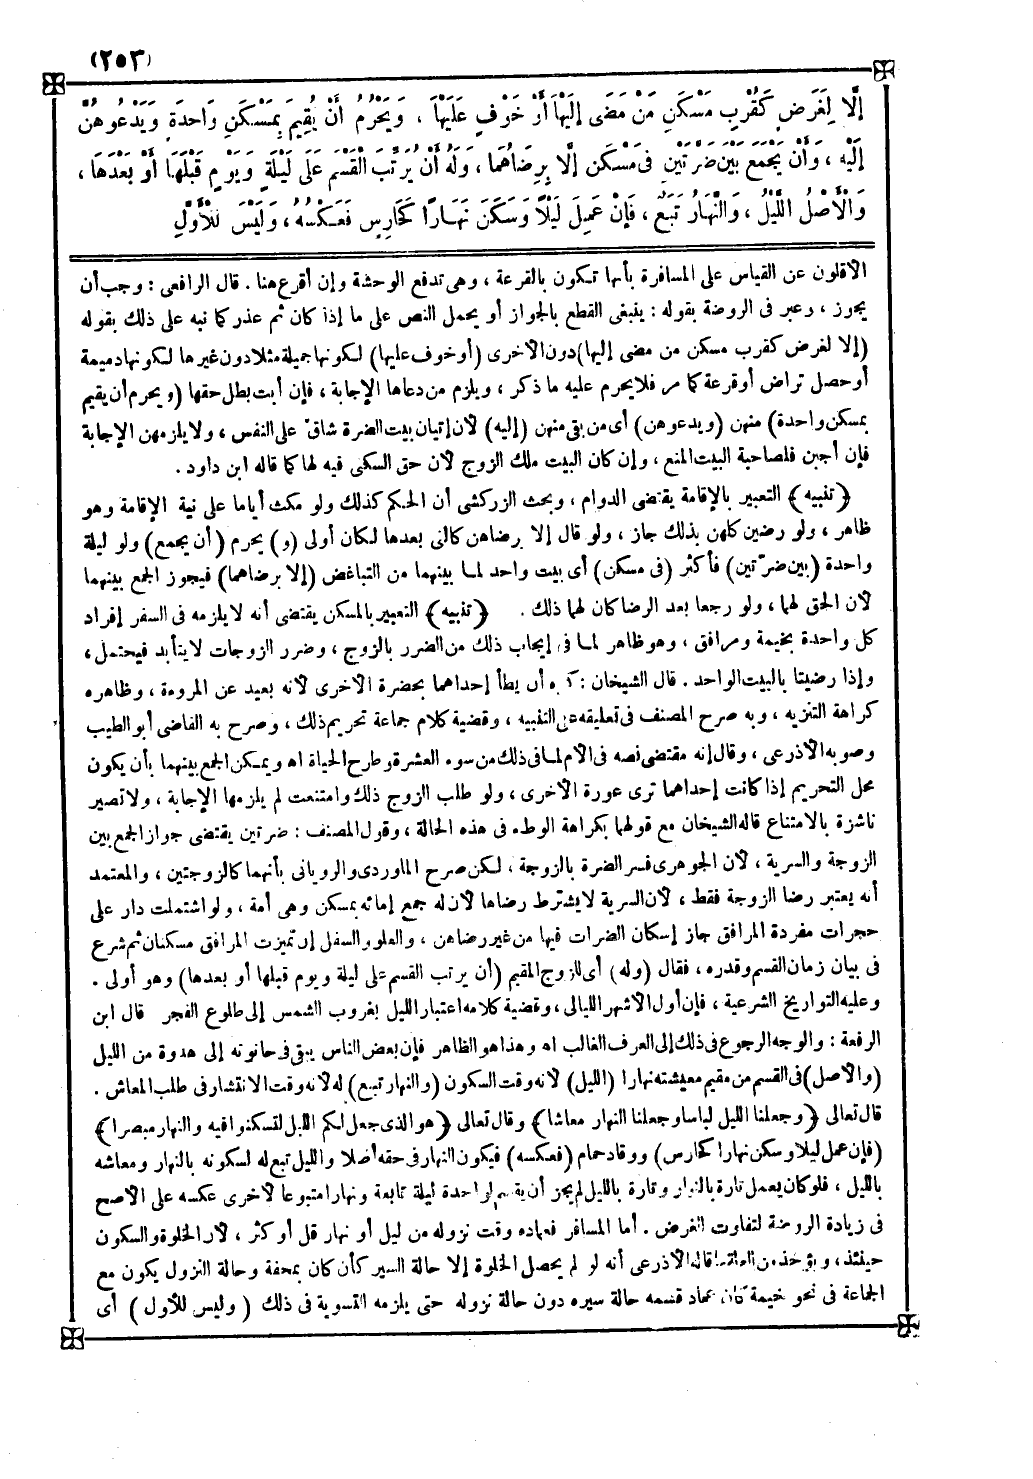 (٢٥٣)
إِلَّا لِغَرَضٍ كَقُرْبِ مَسْكَنِ مَنْ مَضَى إِلَيْهَا أَوْ خَوْفٍ عَلَيْهَا ، وَيَحْرُمُ أَنْ يُقِيمَ بِمَسْكَنِ وَاحِدَةٍ وَيَدْعُوهُنَّ
إِلَيْهِ ، وَأَنْ يَجْمَعَ بَيْنَ ضَرَّتَيْنِ فِى مَسْكَنٍ إِلَّا بِرِضَاهُمَا ، وَلَهُ أَنْ يُرَتِّبَ الْقَسْمَ عَلَى لَيْلَةٍ وَيَوْمٍ قَبْلَهَا أَوْ بَعْدَهَا ،
وَالْأَصْلُ اللَّيْلُ ، وَالنَّهَارُ تَبَعٌ ، فَإِنْ عَمِلَ لَيْلًا وَسَكَنَ نَهَارًا كَحَارِسٍ فَعَكْسُهُ ، وَلَيْسَ لِلْأَوَّلِ
الأقلون عن القياس على المسافرة بأنها تكون بالقرعة ، وهى تدفع الوحشة وإن أقرع هنا . قال الرافعى : وجب أن
يجوز ، وعبر فى الروضة بقوله : ينبغى القطع بالجواز أو يحمل النص على ما إذا كان ثم عذر كما نبه على ذلك بقوله
(إلا لغرض كقرب مسكن من مضى إليها) دون الأخرى (أو خوف عليها) لكونها جميلة مثلا دون غيرها لكونها دميمة
أو حصل تراض أو قرعة كما مر فلا يحرم عليه ما ذكر ، ويلزم من دعاها الإجابة ، فإن أبت بطل حقها (ويحرم أن يقيم
بمسكن واحدة) منهن (ويدعوهن) أى من بقى منهن (إليه) لأن إتيان بيت الضرة شاق على النفس ، ولا يلزمهن الإجابة
فإن أجبن فلصاحبة البيت المنع ، وإن كان البيت ملك الزوج لأن حق السكنى فيه لها كما قاله ابن داود .
﴿ تنبيه ﴾ التعبير بالإقامة يقتضى الدوام ، وبحث الزركشى أن الحكم كذلك ولو مكث أياما على نية الإقامة وهو
ظاهر ، ولو رضين كلهن بذلك جاز ، ولو قال إلا برضاهن كالتى بعدها لكان أولى (و) يحرم (أن يجمع) ولو ليلة
واحدة (بين ضرّتين) فأكثر (فى مسكن) أى بيت واحد لما بينهما من التباغض (إلا برضاهما) فيجوز الجمع بينهما
لأن الحق لهما ، ولو رجعا بعد الرضا كان لهما ذلك . ﴿ تنبيه ﴾ التعبير بالمسكن يقتضى أنه لا يلزمه فى السفر إفراد
كل واحدة بخيمة ومرافق ، وهو ظاهر لما فى إيجاب ذلك من الضرر بالزوج ، وضرر الزوجات لا يتأبد فيحتمل ،
وإذا رضيتا بالبيت الواحد . قال الشيخان : كره أن يطأ إحداهما بحضرة الأخرى لأنه بعيد عن المروءة ، وظاهره
كراهة التنزيه ، وبه صرح المصنف فى تعليقه على التنبيه ، وقضية كلام جماعة تحريم ذلك ، وصرح به القاضى أبو الطيب
وصوبه الأذرعى ، وقال إنه مقتضى نصه فى الأم لما فى ذلك من سوء العشرة وطرح الحياة اه ويمكن الجمع بينهما بأن يكون
محل التحريم إذا كانت إحداهما ترى عورة الأخرى ، ولو طلب الزوج ذلك وامتنعت لم يلزمها الإجابة ، ولا تصير
ناشزة بالامتناع قاله الشيخان مع قولهما بكراهة الوطء فى هذه الحالة ، وقول المصنف : ضرتين يقتضى جواز الجمع بين
الزوجة والسرية ، لأن الجوهرى فسر الضرة بالزوجة ، لكن صرح الماوردى والرويانى بأنهما كالزوجتين ، والمعتمد
أنه يعتبر رضا الزوجة فقط ، لأن السرية لا يشترط رضاها لأن له جمع إمائه بمسكن وهى أمة ، ولو اشتملت دار على
حجرات مفردة المرافق جاز إسكان الضرات فيها من غير رضاهن ، والعلو والسفل إن تميزت المرافق مسكنان ثم شرع
فى بيان زمان القسم وقدره ، فقال (وله) أى للزوج المقيم (أن يرتب القسم على ليلة ويوم قبلها أو بعدها) وهو أولى .
وعليه التواريخ الشرعية ، فإن أول الأشهر الليالى ، وقضية كلامه اعتبار الليل بغروب الشمس إلى طلوع الفجر قال ابن
الرفعة : والوجه الرجوع فى ذلك إلى العرف الغالب اه وهذا هو الظاهر فإن بعض الناس يبقى فى حانوته إلى هدوة من الليل
(والأصل) فى القسم من مقيم معيشته نهارا (الليل) لأنه وقت السكون (والنهار تبع) له لأنه وقت الانتشار فى طلب المعاش .
قال تعالى ﴿ وجعلنا الليل لباسا وجعلنا النهار معاشا ﴾ وقال تعالى ﴿ هو الذى جعل لكم الليل لتسكنوا فيه والنهار مبصرا ﴾
(فإن عمل ليلا وسكن نهارا كحارس) ووقاد حمام (فعكسه) فيكون النهار فى حقه أصلا والليل تبع له لسكونه بالنهار ومعاشه
بالليل ، فلو كان يعمل تارة بالنهار وتارة بالليل لم يجز أن يقسم لواحدة ليلة تابعة ونهارا متبوعا لأخرى عكسه على الأصح
فى زيادة الروضة لتفاوت الغرض . أما المسافر فعماده وقت نزوله من ليل أو نهار قل أو كثر ، لأن الخلوة والسكون
حينئذ ، ويؤخذ من العلة ما قاله الأذرعى أنه لو لم يحصل الخلوة إلا حالة السير كأن كان بمحفة وحالة النزول يكون مع
الجماعة فى نحو خيمة كان عماد قسمه حالة سيره دون حالة نزوله حتى يلزمه التسوية فى ذلك ( وليس للأول ) أى